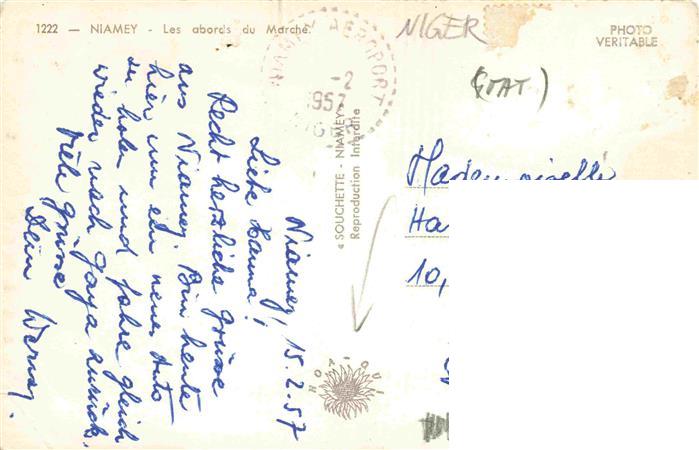 1222 — NIAMEY - Les abords du Marché.
NIAMEY AEROPORT
-2
1957
NIGER
PHOTO
VERITABLE
(ETAT)
« SOUCHETTE - NIAMEY »
Reproduction Interdite
Niamey, 15.2.57
Liebe Hanna!
Recht herzliche Grüsse
aus Niamey. Bin heute
hier um ein neues Auto
zu holen und fahre gleich
wieder nach Gaya zurück.
Viele Grüsse
Dein Werny.
Mademoiselle
Ha
10,